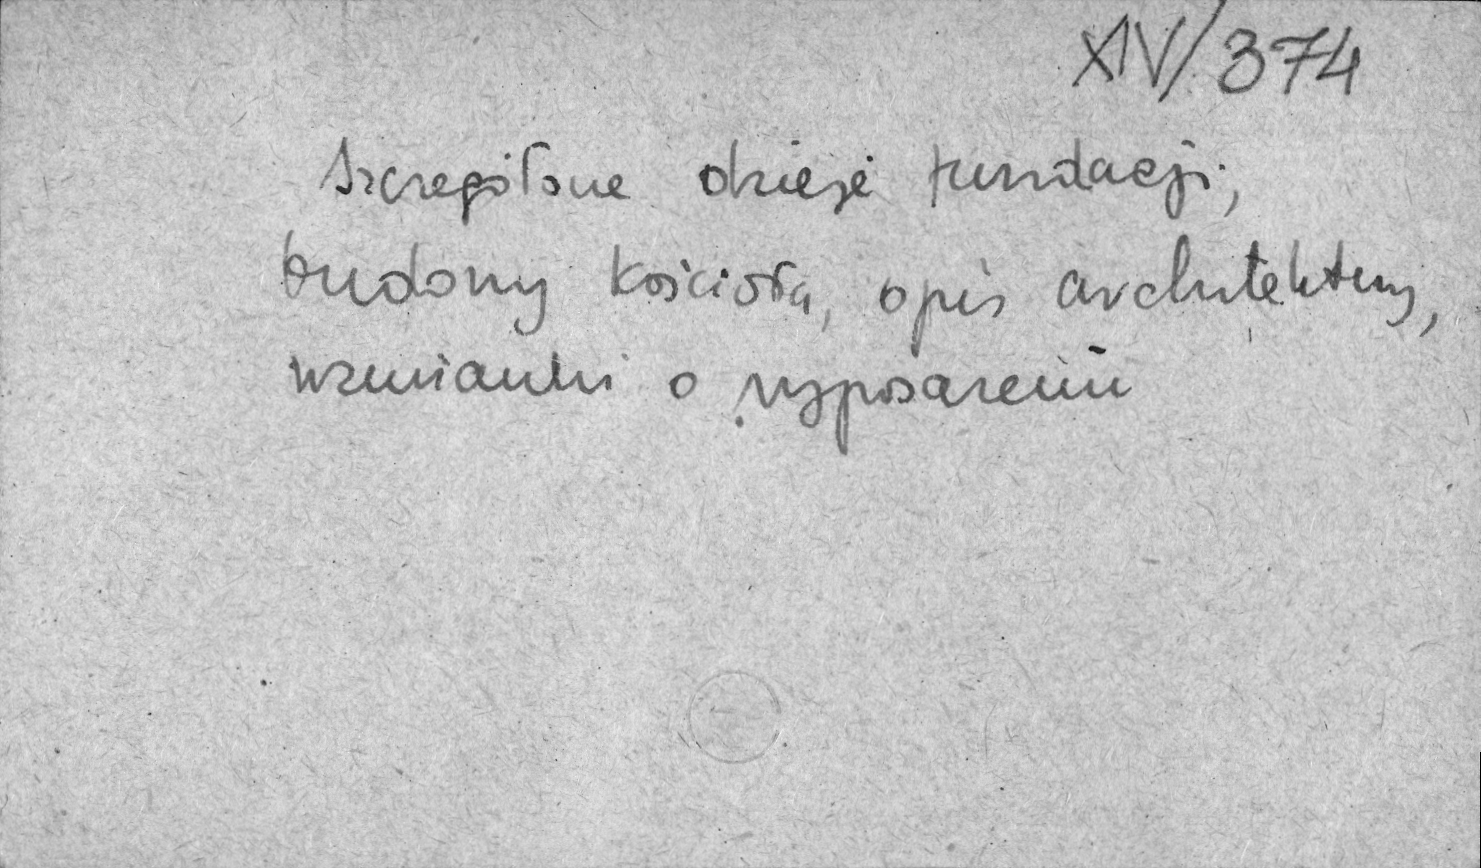 XIV/374
Szczegółowe dzieje fundacji,
budowy kościoła, opis architektury,
wzmianki o wyposażeniu